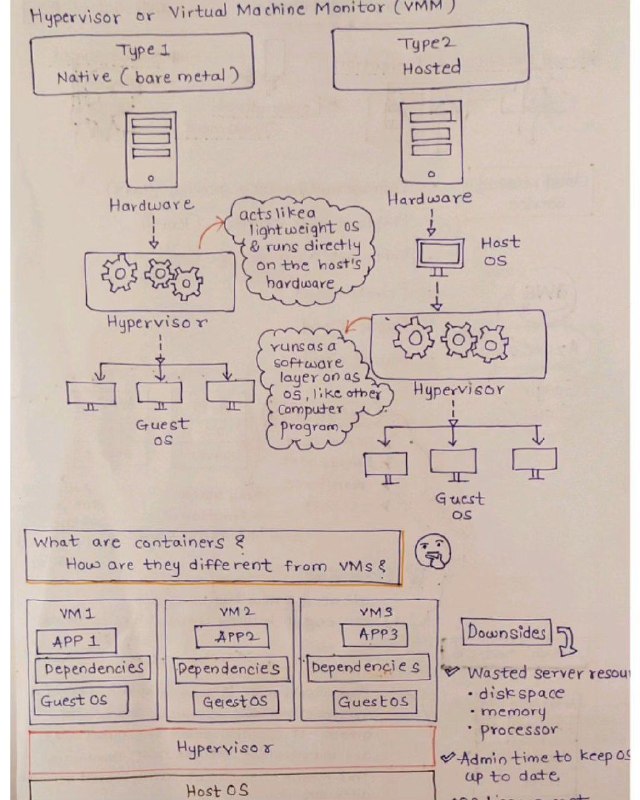 Hypervisor or Virtual Machine Monitor (VMM)
Type 1
Native (bare metal)
Type2
Hosted
Hardware
Hardware
acts like a
lightweight OS
& runs directly
on the host's
hardware
Host
OS
Hypervisor
runs as a
software
layer on as
OS, like other
computer
program
Hypervisor
Guest
OS
Guest
OS
What are containers ?
How are they different from VMs ?
VM 1
APP 1
Dependencies
Guest OS
VM 2
APP2
Dependencies
Guest OS
VM3
APP3
Dependencies
Guest OS
Hypervisor
Host OS
Downsides
Wasted server resou
• disk space
• memory
• processor
Admin time to keep OS
up to date